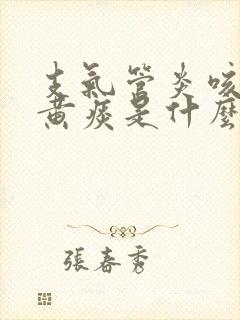 支氣管炎咳
黃痰是什麼
張春秀